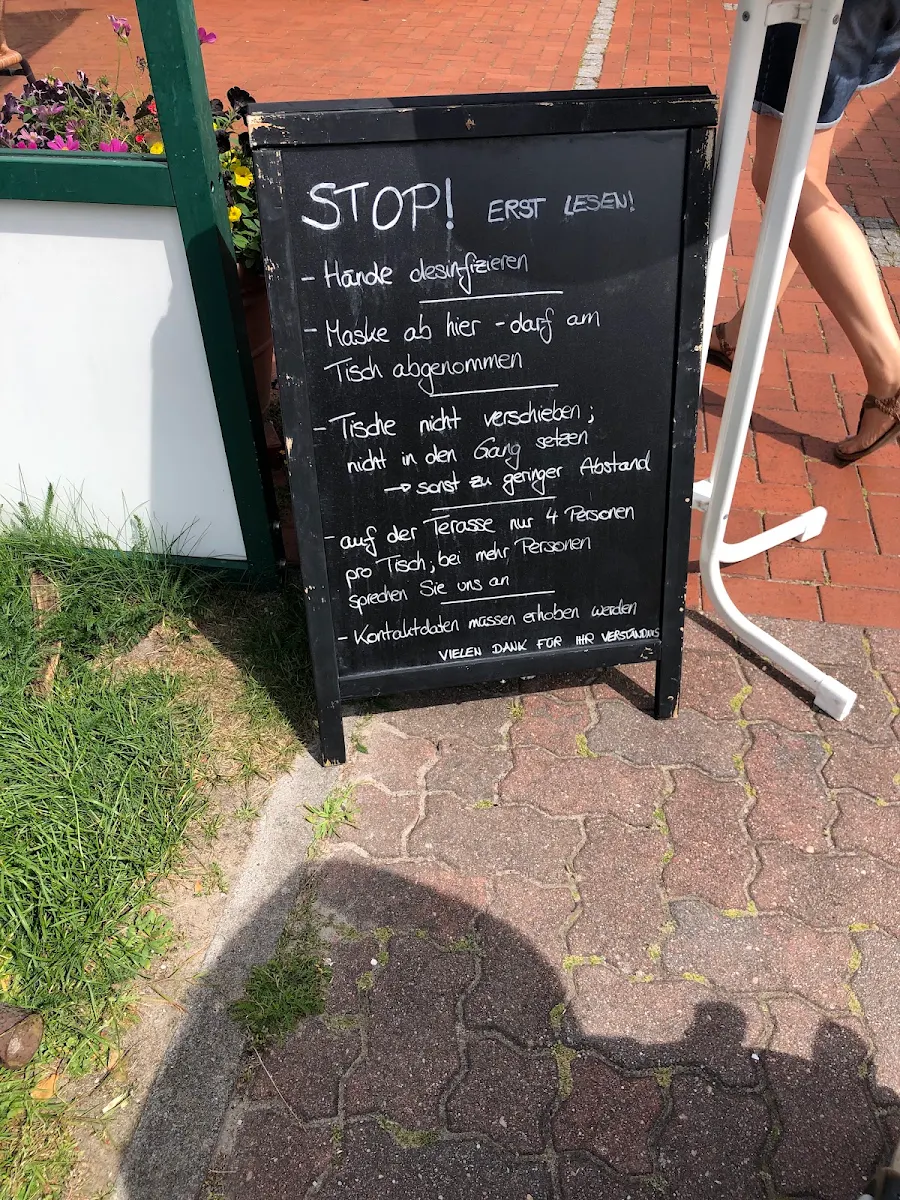 STOP! ERST LESEN!
- Hände desinfizieren
- Maske ab hier - darf am
Tisch abgenommen
- Tische nicht verschieben;
nicht in den Gang setzen
→ sonst zu geringer Abstand
- auf der Terasse nur 4 Personen
pro Tisch; bei mehr Personen
sprechen Sie uns an
- Kontaktdaten müssen erhoben werden
VIELEN DANK FÜR IHR VERSTÄNDNIS